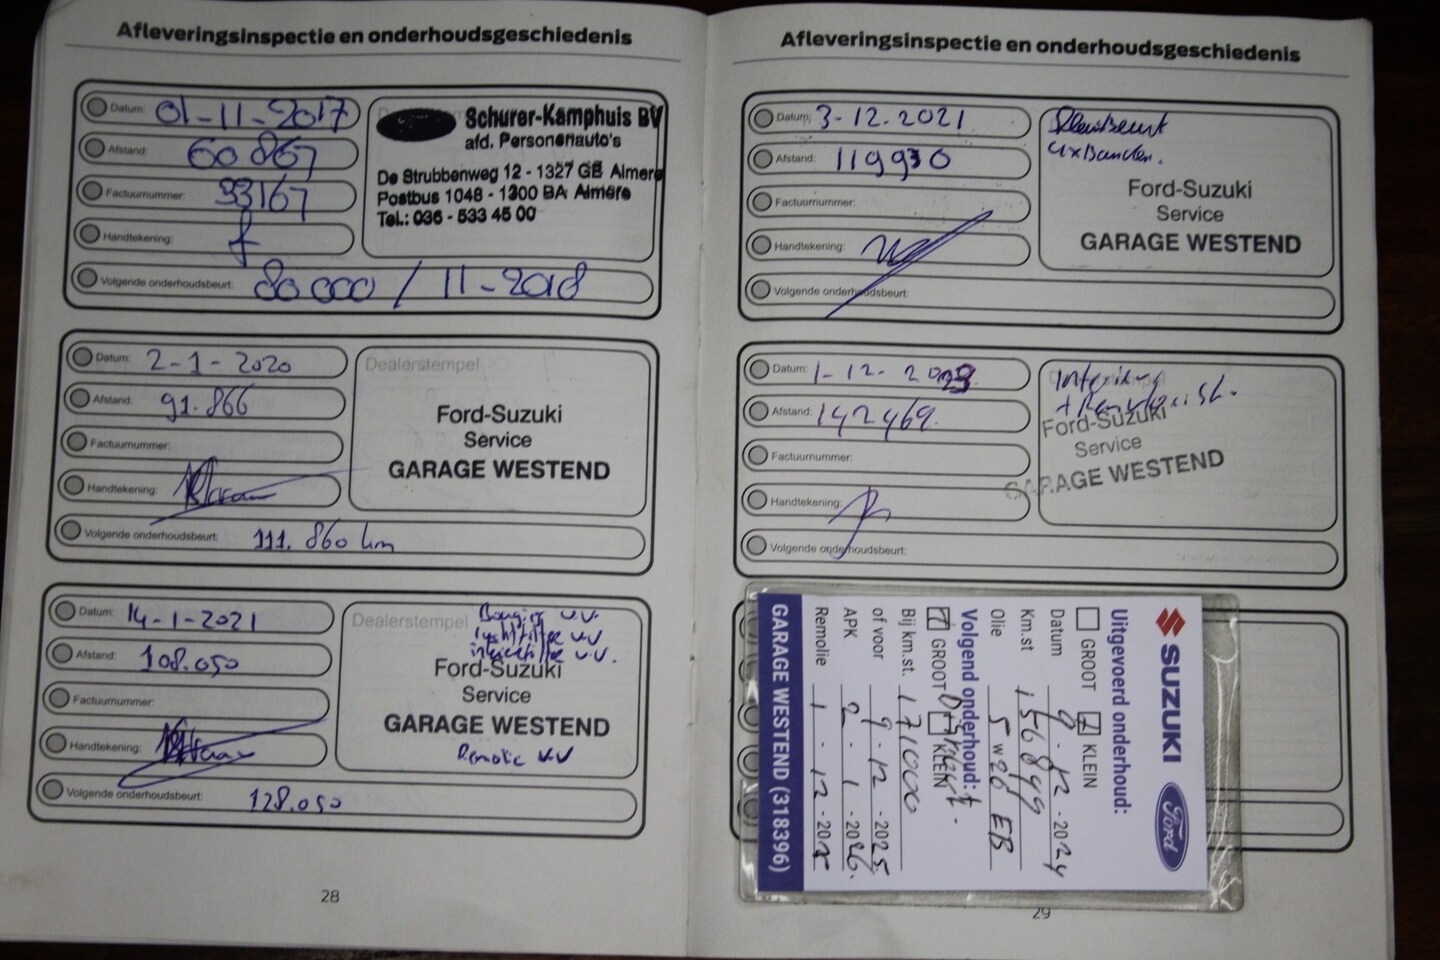 Afleveringsinspectie en onderhoudsgeschiedenis
Datum: 01-11-2017
Afstand: 60867
Factuurnummer: 33167
Handtekening:
Volgende onderhoudsbeurt: 80000 / 11-2018
Schurer-Kamphuis BV
afd. Personenauto's
De Strubbenweg 12 - 1327 GB Almere
Postbus 1048 - 1300 BA Almere
Tel.: 036 - 533 45 00
Datum: 2-1-2020
Afstand: 91.866
Factuurnummer:
Handtekening:
Volgende onderhoudsbeurt: 111.860 km
Dealerstempel
Ford-Suzuki
Service
GARAGE WESTEND
Datum: 14-1-2021
Afstand: 108.050
Factuurnummer:
Handtekening:
Volgende onderhoudsbeurt: 128.050
Dealerstempel
Bougies v.v.
luchtfilter v.v
interieurfilter v.v.
Ford-Suzuki
Service
GARAGE WESTEND
Remolie v.v
28
Afleveringsinspectie en onderhoudsgeschiedenis
Datum: 3-12.2021
Afstand: 119930
Factuurnummer:
Handtekening:
Volgende onderhoudsbeurt:
4x Banden.
Ford-Suzuki
Service
GARAGE WESTEND
Datum: 1-12-2023
Afstand: 142469.
Factuurnummer:
Handtekening:
Volgende onderhoudsbeurt:
Ford-Suzuki
Service
GARAGE WESTEND
SUZUKI
Ford
Uitgevoerd onderhoud:
GROOT KLEIN
Datum 9-12-2024
Km.st 156899
Olie 5w20 EB
Volgend onderhoud:
GROOT KLEIN
Bij km.st. 171000
of voor 9-12-2025
APK 2-1-2026.
Remolie 1-12-202
GARAGE WESTEND (318396)
29